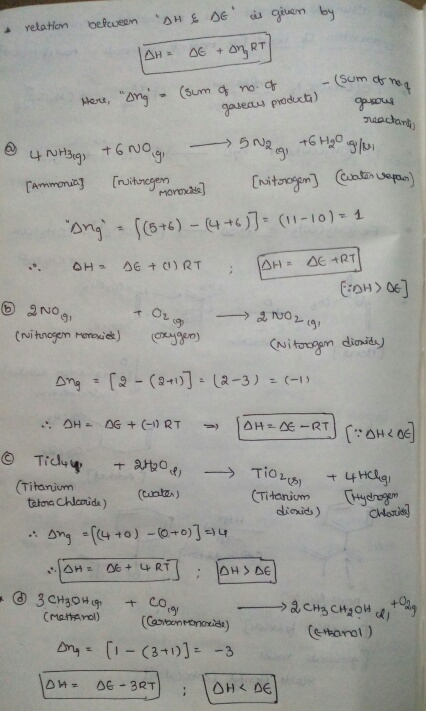 * relation between 'ΔH & ΔE' is given by
ΔH = ΔE + Δng RT
Here, "Δng" = (Sum of no. of gaseous products) - (Sum of no of gaseous reactants)
(a) 4 NH3(g) + 6 NO(g) → 5 N2(g) + 6 H2O(g)
[Ammonia] [Nitrogen Monoxide] [Nitrogen] (Water vapour)
"Δng" = [(5+6) - (4+6)] = (11-10) = 1
∴ ΔH = ΔE + (1) RT ; ΔH = ΔE + RT
[∵ ΔH > ΔE]
(b) 2NO(g) + O2(g) → 2 NO2(g)
(Nitrogen Monoxide) (oxygen) (Nitrogen dioxide)
Δng = [2 - (2+1)] = (2-3) = (-1)
∴ ΔH = ΔE + (-1) RT ⇒ ΔH = ΔE - RT [∵ ΔH < ΔE]
(c) TiCl4 + 2H2O(l) → TiO2(s) + 4HCl(g)
(Titanium tetra Chloride) (water) (Titanium dioxide) [Hydrogen Chloride]
∴ Δng = [(4+0) - (0+0)] = 4
∴ ΔH = ΔE + 4 RT ; ΔH > ΔE
* (d) 3 CH3OH(g) + CO(g) → 2 CH3CH2OH(l) + O2(g)
(Methanol) (Carbon Monoxide) (Ethanol)
Δng = [1 - (3+1)] = -3
ΔH = ΔE - 3RT ; ΔH < ΔE